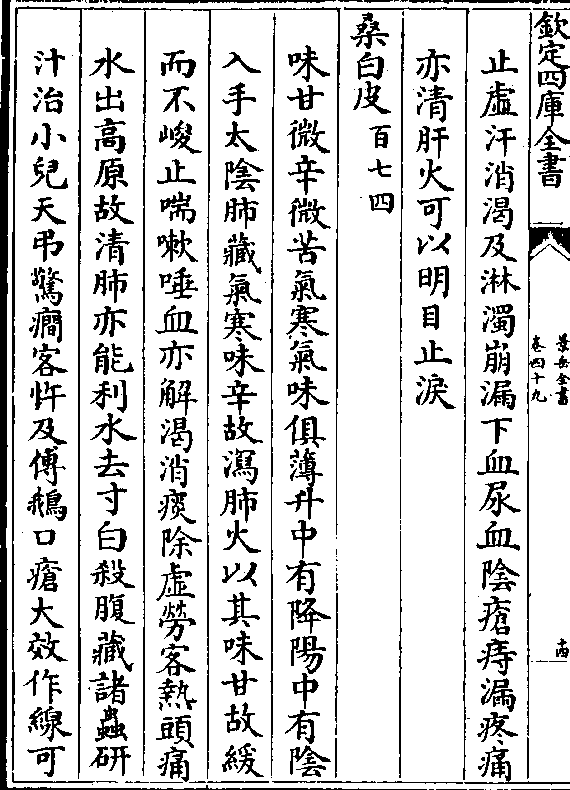 欽定四庫全書
景岳全書
卷四十九
十四
止虛汗消渴及淋濁崩漏下血尿血陰瘡痔漏疼痛
亦清肝火可以明目止淚
桑白皮百七四
味甘微辛微苦氣寒氣味俱薄升中有降陽中有陰
入手太陰肺藏氣寒味辛故瀉肺火以其味甘故緩
而不峻止喘嗽唾血亦解渴消痰除虛勞客熱頭痛
水出高原故清肺亦能利水去寸白殺腹藏諸蟲研
汁治小兒天弔驚癇客忤及傅鵝口瘡大效作線可